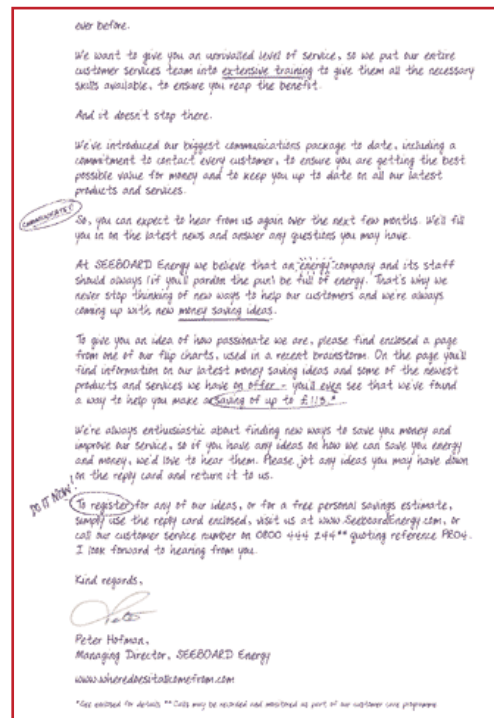 ever before.
We want to give you an unrivalled level of service, so we put our entire
customer services team into extensive training to give them all the necessary
skills available, to ensure you reap the benefit.
And it doesn't stop there.
We've introduced our biggest communications package to date, including a
commitment to contact every customer, to ensure you are getting the best
possible value for money and to keep you up to date on all our latest
products and services.
COMMUNICATE!
So, you can expect to hear from us again over the next few months. We'll fill
you in on the latest news and answer any questions you may have.
At SEEBOARD Energy we believe that an "energy" company and its staff
should always (if you'll pardon the pun) be full of energy. That's why we
never stop thinking of new ways to help our customers and we're always
coming up with new money saving ideas.
To give you an idea of how passionate we are, please find enclosed a page
from one of our flip charts, used in a recent brainstorm. On the page you'll
find information on our latest money saving ideas and some of the newest
products and services we have on offer - you'll even see that we've found
a way to help you make a saving of up to £113.*
We're always enthusiastic about finding new ways to save you money and
improve our service, so if you have any ideas on how we can save you energy
and money, we'd love to hear them. Please jot any ideas you may have down
on the reply card and return it to us.
DO IT NOW!
To register for any of our ideas, or for a free personal savings estimate,
simply use the reply card enclosed, visit us at www.SeeboardEnergy.com, or
call our customer service number on 0800 444 244** quoting reference PR04.
I look forward to hearing from you.
Kind regards,
Peter
Peter Hofman,
Managing Director, SEEBOARD Energy
www.wheredoesitallcomefrom.com
*See enclosed for details **Calls may be recorded and monitored as part of our customer care programme